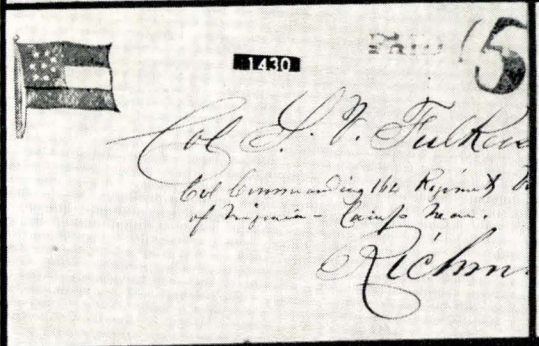 1430
PAID 5
Col S. V. Fulker
Col Commanding
of Virginia - Camp near.
Richm